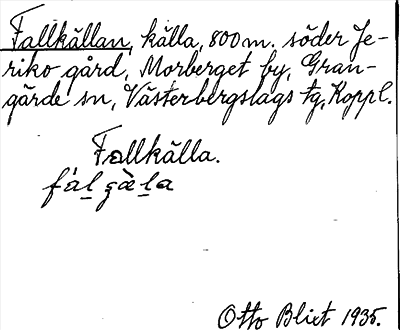 Fallkällan, källa, 800 m. söder Je-
riko gård, Morberget by, Gran-
gärde sn, Västerbergslags tg, Koppl.
Fallkälla.
Otto Blixt 1935.